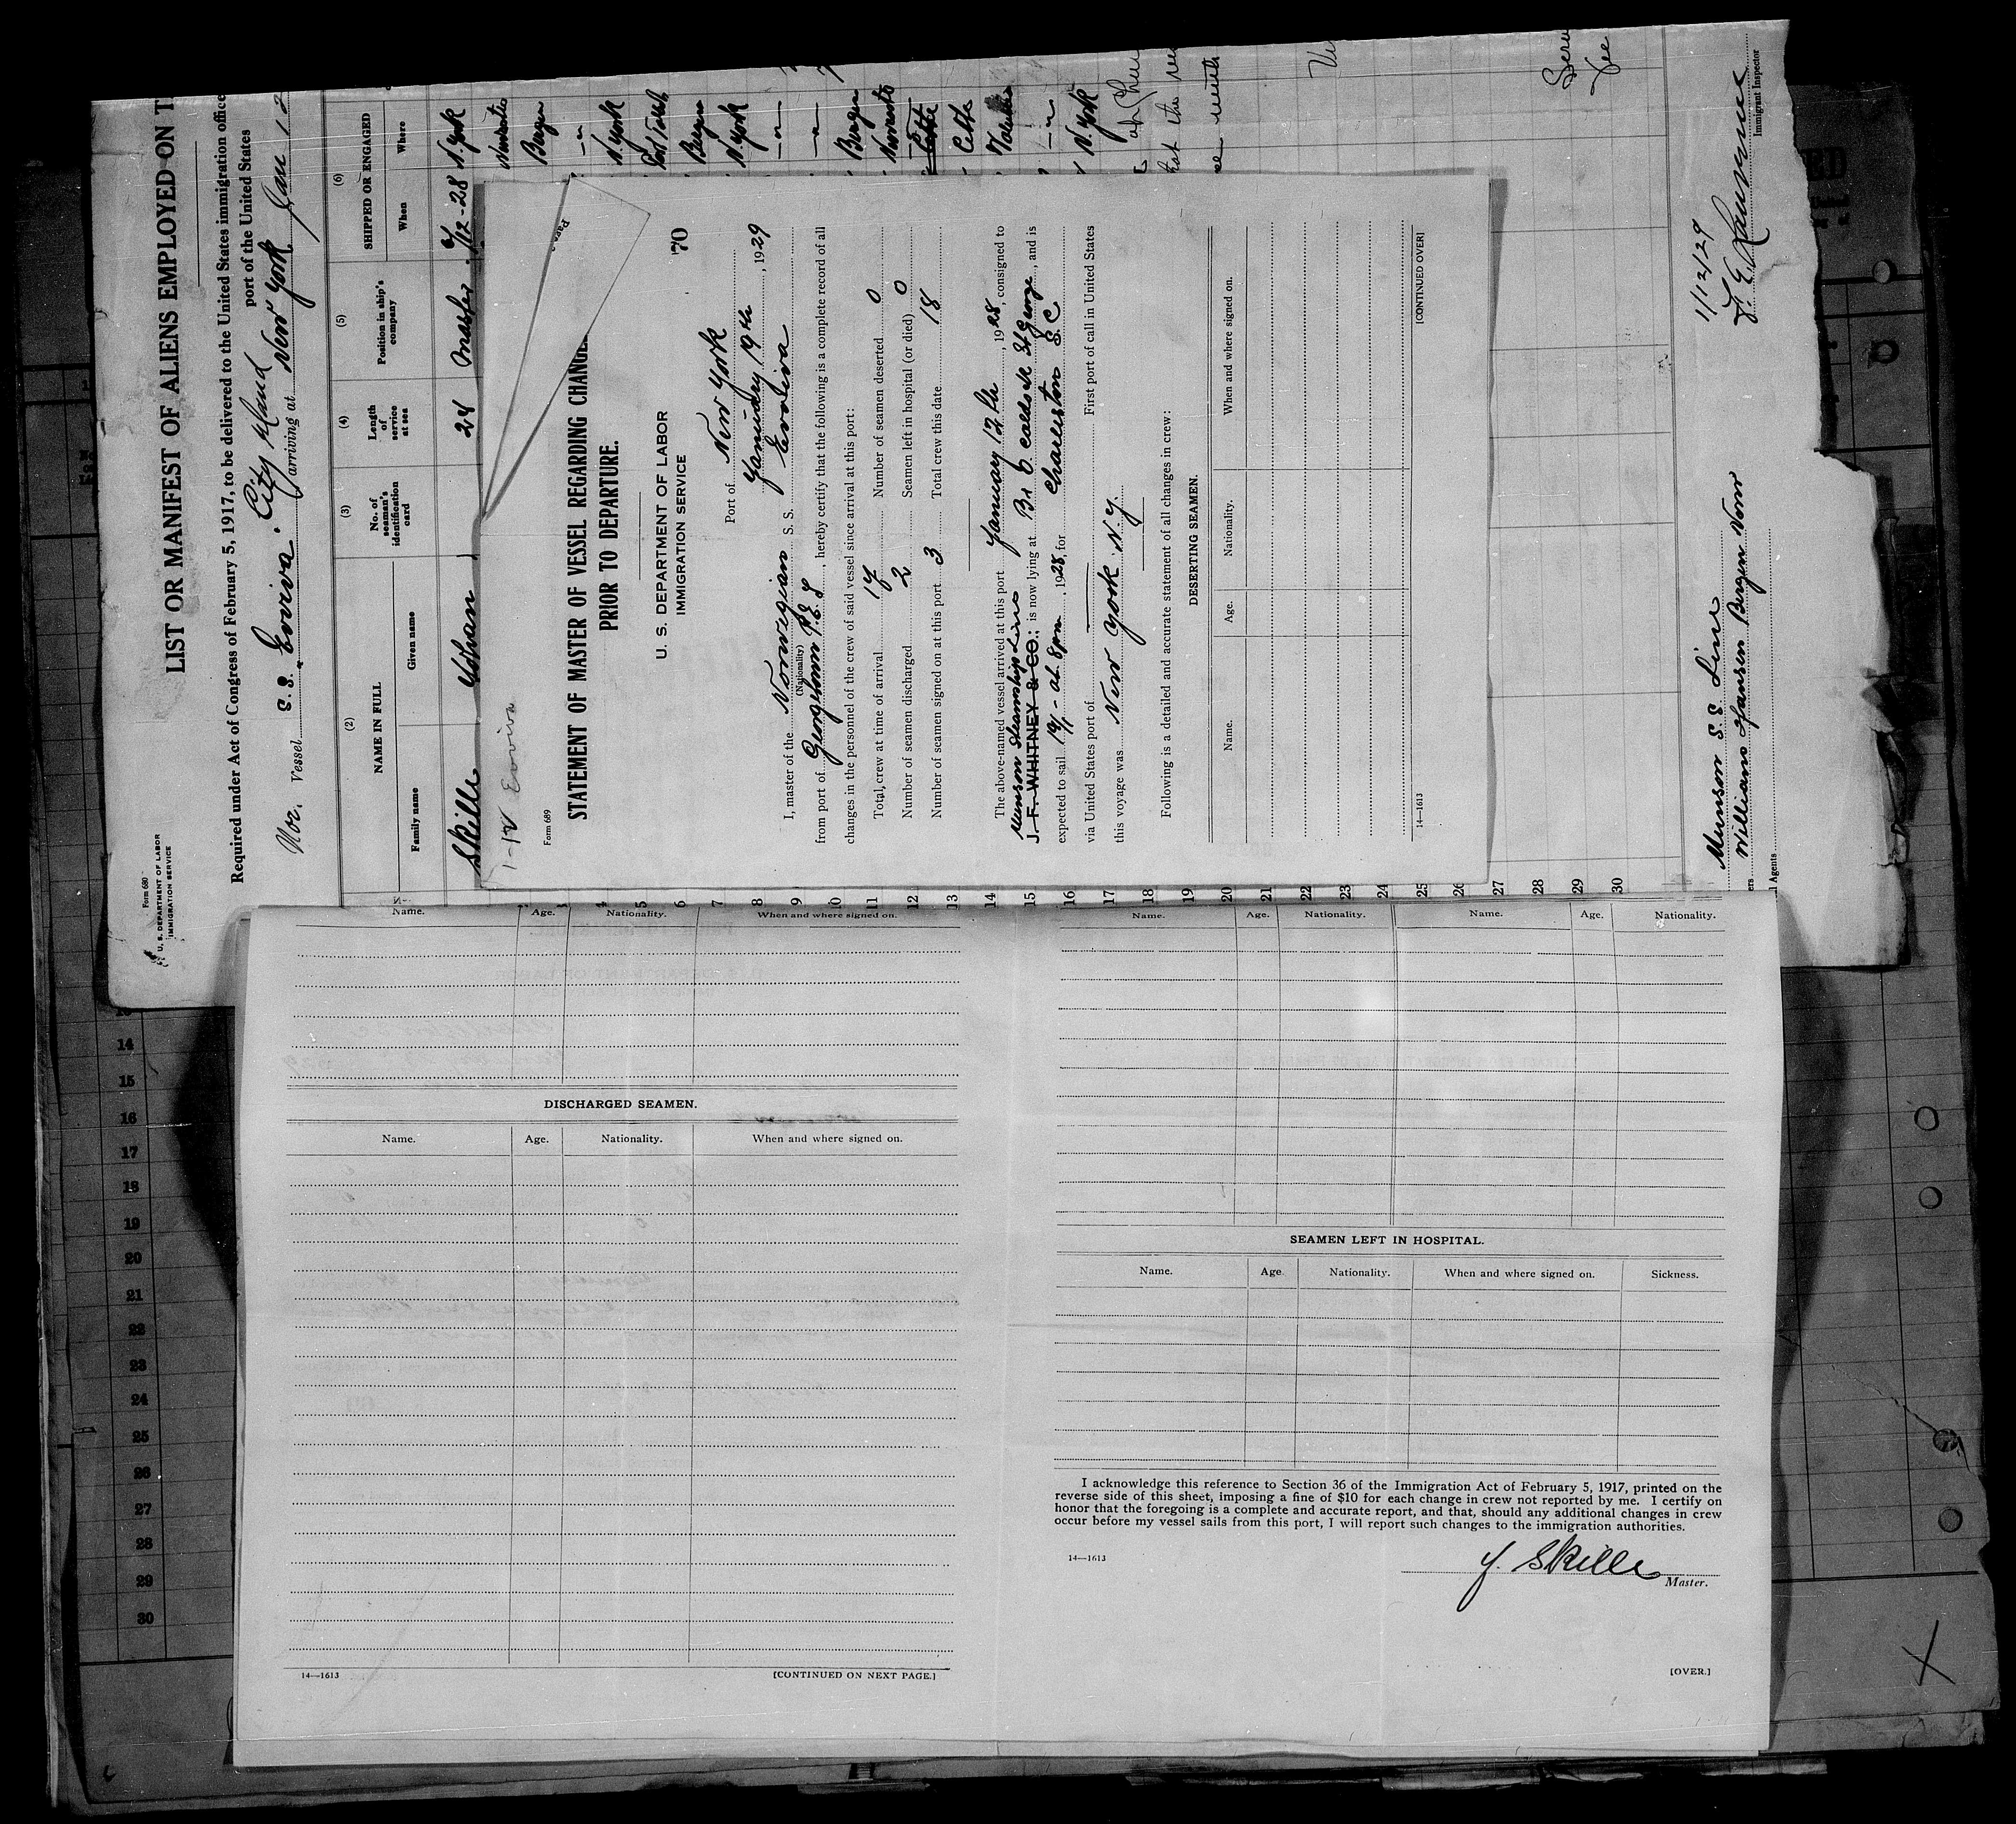 Form 680
U. S. DEPARTMENT OF LABOR
IMMIGRATION SERVICE
LIST OR MANIFEST OF ALIENS EMPLOYED ON T
Required under Act of Congress of February 5, 1917, to be delivered to the United States immigration office
port of the United States
Nor. Vessel S.S. "Evviva" arriving at New York Jan 12
City Island
(2)
(3)
(4)
(5)
(6)
NAME IN FULL
No. of seaman's identification card
Length of service at sea
Position in ship's company
SHIPPED OR ENGAGED
Family name
Given name
When
Where
Skille Johan 24 Master 4/12-28 N. York
Bergen
N. York
Bergen
N. York
Bergen
Cette
Cette
N. York
3
4
5
6
7
8
9
10
11
12
13
14
15
16
17
18
19
20
21
22
23
24
25
26
27
28
29
30
1/12/29
Immigrant Inspector
Munson S S Line
Williams Hansen Bergen Norw
Agents
1-12 Evviva
Form 689
70
STATEMENT OF MASTER OF VESSEL REGARDING CHANGE
PRIOR TO DEPARTURE.
U. S. DEPARTMENT OF LABOR
IMMIGRATION SERVICE
Port of New York
January 19th, 1929
I, master of the Norwegian S. S. Evviva
(Nationality)
from port of Georgetown P.E.I., hereby certify that the following is a complete record of all
changes in the personnel of the crew of said vessel since arrival at this port:
Total crew at time of arrival 17 Number of seamen deserted 0
Number of seamen discharged 2 Seamen left in hospital (or died) 0
Number of seamen signed on at this port 3 Total crew this date 18
The above-named vessel arrived at this port January 12th, 1928, consigned to
Munson Steamship Line
J. F. WHITNEY & CO.; is now lying at St George, and is
expected to sail 19/1 - at 8pm, 1928, for Charleston S.C
via United States port of First port of call in United States
this voyage was New York N.Y.
Following is a detailed and accurate statement of all changes in crew:
DESERTING SEAMEN.
Name.
Age.
Nationality.
When and where signed on.
14—1613
[CONTINUED OVER]
Name.
Age.
Nationality.
When and where signed on.
DISCHARGED SEAMEN.
Name.
Age.
Nationality.
When and where signed on.
14—1613
[CONTINUED ON NEXT PAGE.]
Name.
Age.
Nationality.
Name.
Age.
Nationality.
SEAMEN LEFT IN HOSPITAL.
Name.
Age
Nationality.
When and where signed on.
Sickness.
I acknowledge this reference to Section 36 of the Immigration Act of February 5, 1917, printed on the
reverse side of this sheet, imposing a fine of $10 for each change in crew not reported by me. I certify on
honor that the foregoing is a complete and accurate report, and that, should any additional changes in crew
occur before my vessel sails from this port, I will report such changes to the immigration authorities.
14—1613
J. Skille
Master.
[OVER.]
14
15
16
17
18
19
20
21
22
23
24
25
26
27
28
29
30